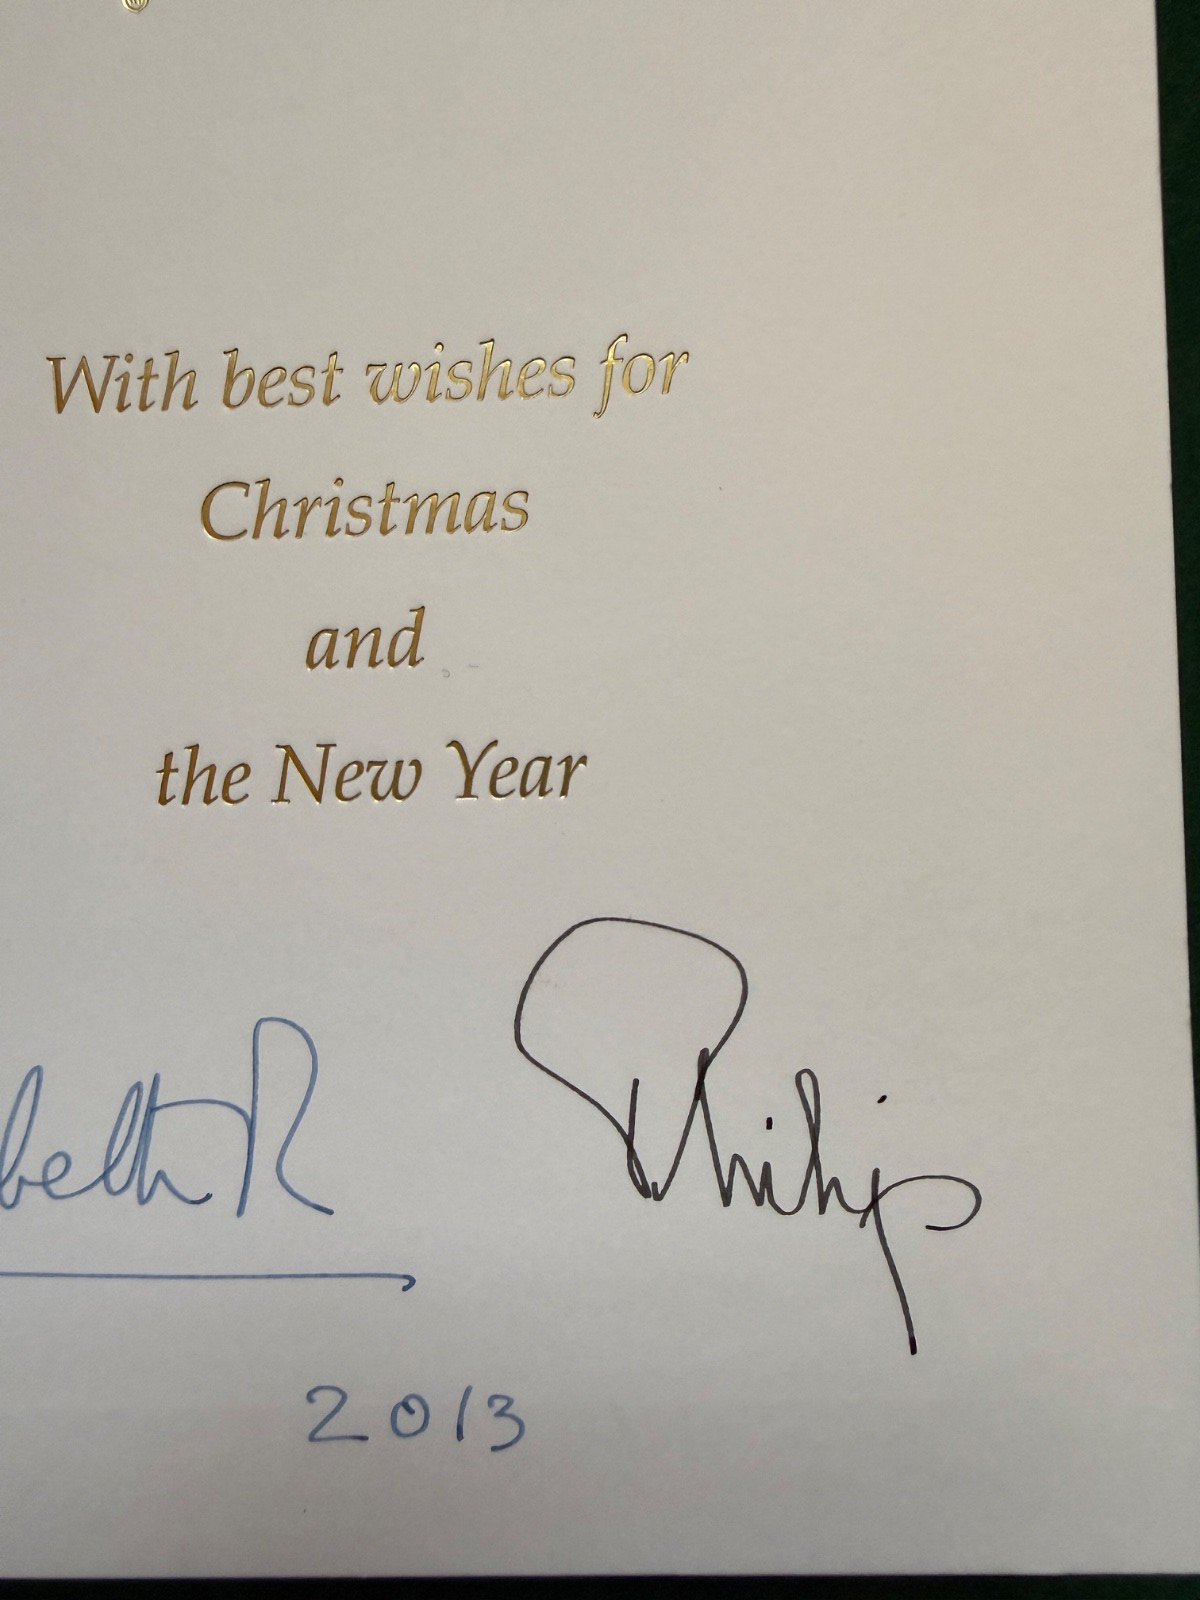 With best wishes for
Christmas
and
the New Year
beth R Philip
2013